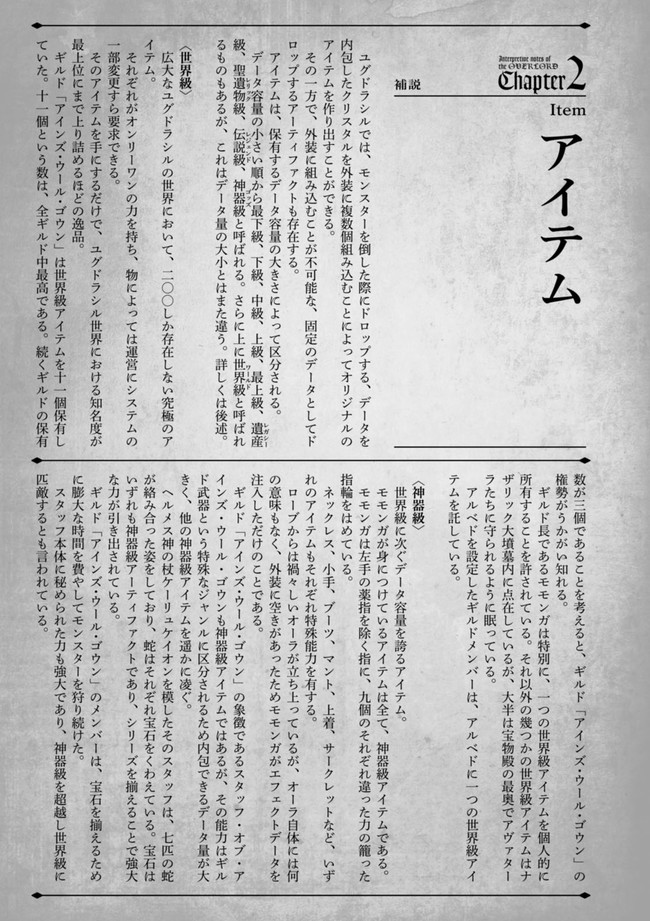 Interpretive notes of
the OVERLORD
Chapter2
補説
Item
アイテム
ユグドラシルでは、モンスターを倒した際にドロップする、データを
内包したクリスタルを外装に複数個組み込むことによってオリジナルの
アイテムを作り出すことができる。
その一方で、外装に組み込むことが不可能な、固定のデータとしてド
ロップするアーティファクトも存在する。
アイテムは、保有するデータ容量の大きさによって区分される。
データ容量の小さい順から最下級、下級、中級、上級、最上級、遺産
級、聖遺物級、伝説級、神器級と呼ばれる。さらに上に世界級と呼ばれ
るものもあるが、これはデータ量の大小とはまた違う。詳しくは後述。
〈世界級〉
広大なユグドラシルの世界において、二〇〇しか存在しない究極のア
イテム。
それぞれがオンリーワンの力を持ち、物によっては運営にシステムの
一部変更すら要求できる。
そのアイテムを手にするだけで、ユグドラシル世界における知名度が
最上位にまで上り詰めるほどの逸品。
ギルド「アインズ・ウール・ゴウン」は世界級アイテムを十一個保有し
ていた。十一個という数は、全ギルド中最高である。続くギルドの保有
数が三個であることを考えると、ギルド「アインズ・ウール・ゴウン」の
権勢がうかがい知れる。
ギルド長であるモモンガは特別に、一つの世界級アイテムを個人的に
所有することを許されている。それ以外の幾つかの世界級アイテムはナ
ザリック大墳墓内に点在しているが、大半は宝物殿の最奥でアヴァター
ラたちに守られるように眠っている。
アルベドを設定したギルドメンバーは、アルベドに一つの世界級アイ
テムを託している。
〈神器級〉
世界級に次ぐデータ容量を誇るアイテム。
モモンガが身につけているアイテムは全て、神器級アイテムである。
モモンガは左手の薬指を除く指に、九個のそれぞれ違った力の籠った
指輪をはめている。
ネックレス、小手、ブーツ、マント、上着、サークレットなど、いず
れのアイテムもそれぞれ特殊能力を有する。
ローブからは禍々しいオーラが立ち上っているが、オーラ自体には何
の意味もなく、外装に空きがあったためモモンガがエフェクトデータを
注入しただけのことである。
ギルド「アインズ・ウール・ゴウン」の象徴であるスタッフ・オブ・ア
インズ・ウール・ゴウンも神器級アイテムではあるが、その能力はギル
ド武器という特殊なジャンルに区分されるため内包できるデータ量が大
きく、他の神器級アイテムを遥かに凌ぐ。
ヘルメス神の杖ケーリュケイオンを模したそのスタッフは、七匹の蛇
が絡み合った姿をしており、蛇はそれぞれ宝石をくわえている。宝石は
いずれも神器級アーティファクトであり、シリーズを揃えることで強大
な力が引き出されている。
ギルド「アインズ・ウール・ゴウン」のメンバーは、宝石を揃えるため
に膨大な時間を費やしてモンスターを狩り続けた。
スタッフ本体に秘められた力も強大であり、神器級を超越し世界級に
匹敵するとも言われている。